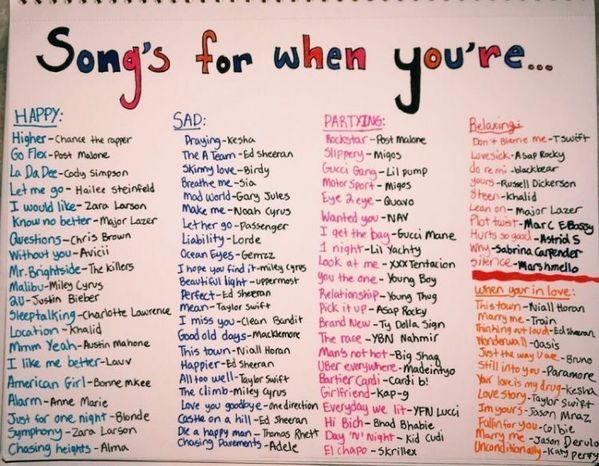 Song's for when you're...
HAPPY:
Higher-Chance the rapper
Go Flex-Post Malone
La Da Dee-Cody Simpson
Let me go-Hailee steinfeld
I would like-Zara Larson
Know no better-Major Lazer
Questions-Chris Brown
Without you-Avicii
Mr. Brightside-The killers
Malibu-Miley Cyrus
2U-Justin Bieber
Sleeptalking-Charlotte Lawrence
Location-Khalid
Mmm Yeah-Austin Mahone
I like me better-Lauv
American Girl-Bonne mKee
Alarm-Anne Marie
Just for one night-Blonde
Symphony-Zara Larson
Chasing heights-Alma
SAD:
Praying-Kesha
The A Team-Ed sheeran
Skinny love-Birdy
Breathe me-Sia
Mad world-Gary Jules
Make me-Noah Cyrus
Let her go-Passenger
Liability-Lorde
Ocean Eyes-Gemzz
I hope you find it-miley Cyrus
Beautiful light-uppermost
Perfect-Ed Sheeran
Mean-Taylor swift
I miss you-Clean Bandit
Good old days-Macklemore
This town-Niall Horan
Happier-Ed Sheeran
All too well-Taylor Swift
The climb-miley Cyrus
Love you goodbye-one direction
Castle on a hill-Ed Sheeran
Die a happy man-Thomas Rhett
Chasing Pavements-Adele
PARTYING:
Rockstar-Post Malone
Slippery-Migos
Gucci Gang-Lil pump
Motorsport-Migos
Eye 2 eye-Quavo
Wanted you-NAV
I get the bag-Gucci Mane
1 night-Lil Yachty
Look at me-XXXTentacion
you the one-Young Boy
Relationship-Young Thug
Pick it up-Asap Rocky
Brand New-Ty Dolla Sign
The race-YBN Nahmir
Man's not hot-Big Shaq
Uber everywhere-Madeintyo
Bartier Cardi-Cardi b!
Girlfriend-Kap-g
Everyday we lit-YFN Lucci
Hi Bich-Bhad Bhabie
Day 'N' Night-Kid Cudi
El chapo-Skrillex
Relaxing:
Don't Blame me-TSwift
Lovesick-Asap Rocky
do re mi-blackbear
yours-Russell Dickerson
8teen-Khalid
Lean on-Major Lazer
Plot twist-Marc E Bassy
Hurts so good-Astrid S
Why-Sabrina Carpender
Silence-Marshmello
When your in love:
This town-Niall Horan
Marry me-Train
Thinking out loud-Ed sheeran
Wonderwall-Oasis
Just the way U are-Bruno
Still into you-Paramore
Your love is my drug-Kesha
Love story-Taylor Swift
Im yours-Jason Mraz
Fallin for you-Colbie
Marry me-Jason Derulo
Unconditionally-Katy Perry